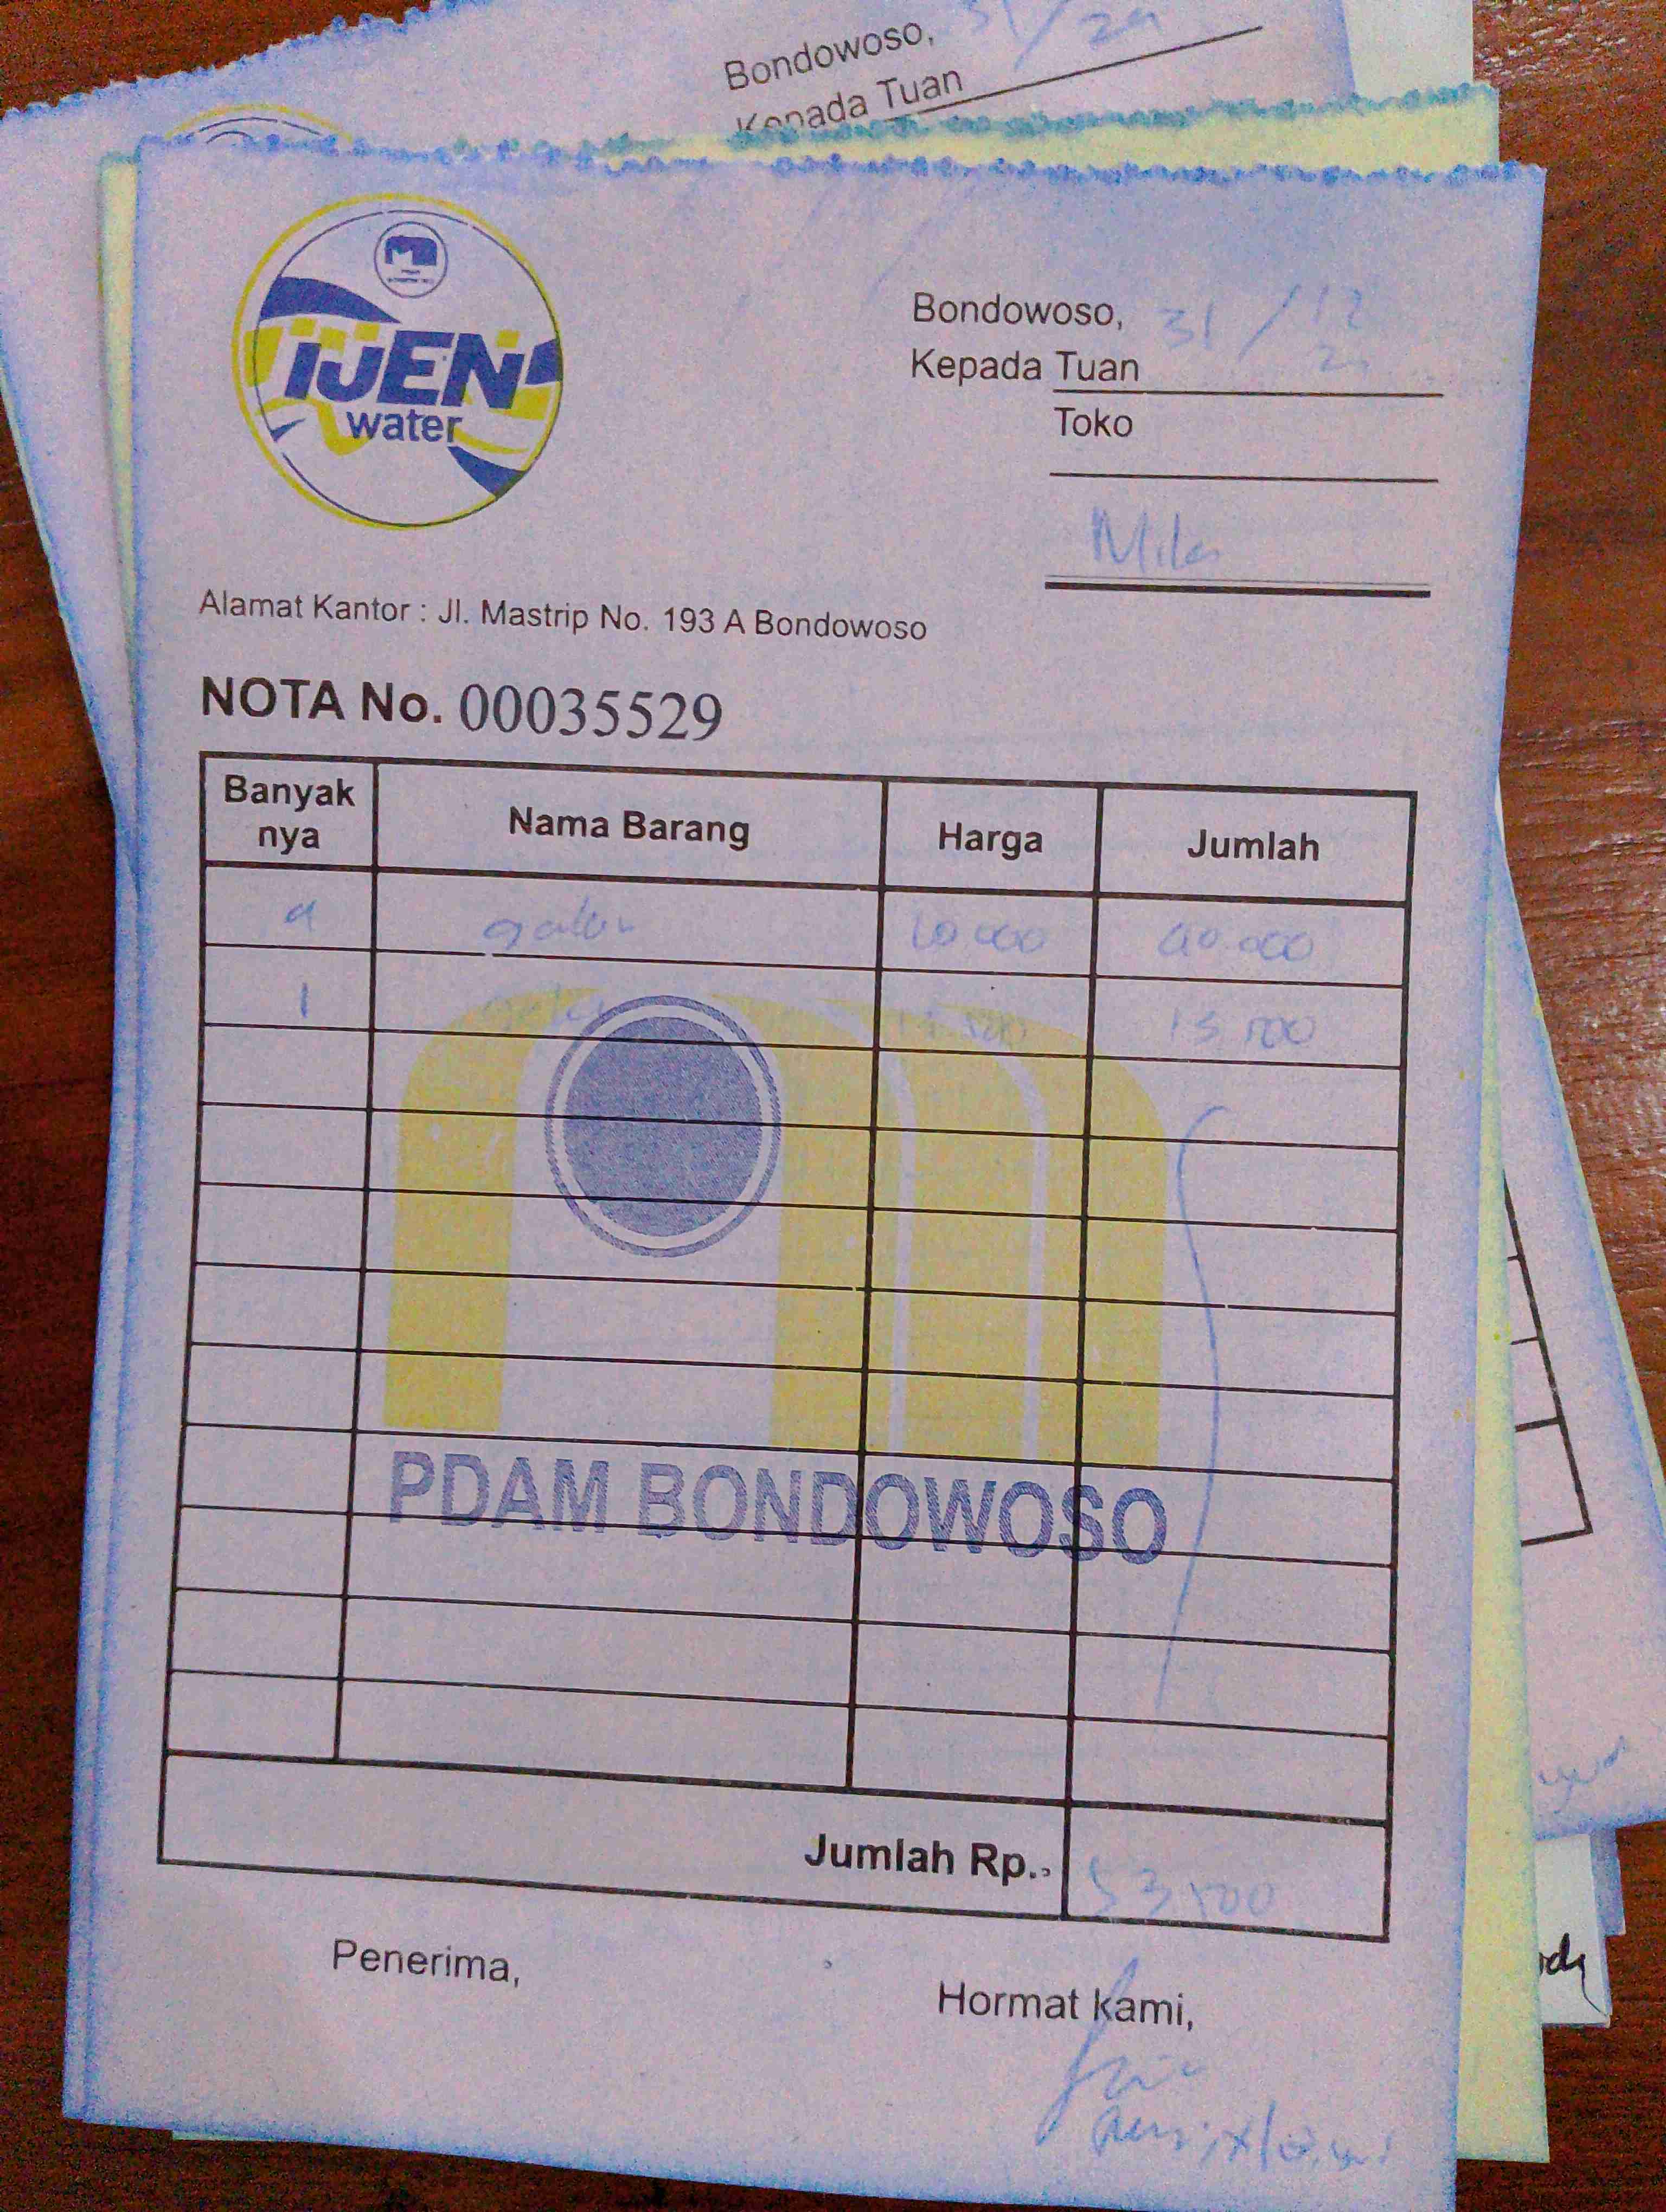 Bondowoso, 31/
Kepada Tuan
IJEN
water
Bondowoso, 31/12
Kepada Tuan
Toko
Mila
Alamat Kantor : Jl. Mastrip No. 193 A Bondowoso
NOTA No. 00035529
Banyak nya Nama Barang Harga Jumlah
4 galon 10.000 40.000
1 galon 13.500 13.500
PDAM BONDOWOSO
Jumlah Rp., 53.500
Penerima,
Hormat kami,